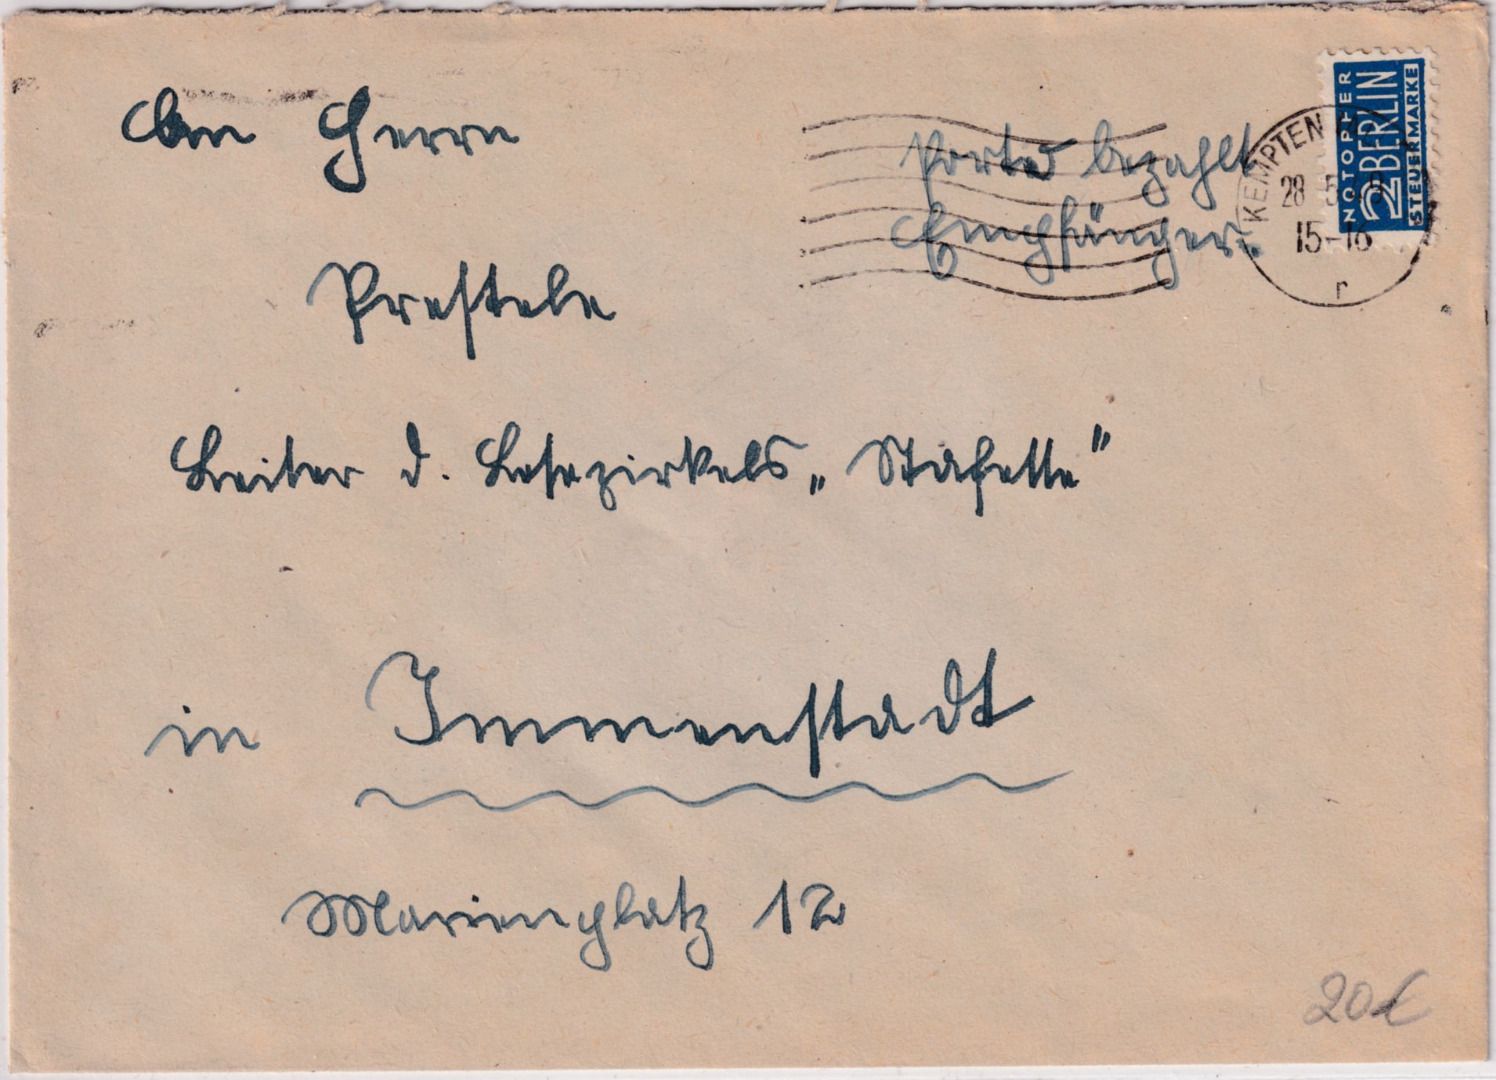 An Herrn
Prestele
Leiter d. Lesezirkels „Stafette"
in Immenstadt
Marienplatz 12
Porto bezahlt
Empfänger.
KEMPTEN
28 5
15-16
r
NOTOPFER
2 BERLIN
STEUERMARKE
20€